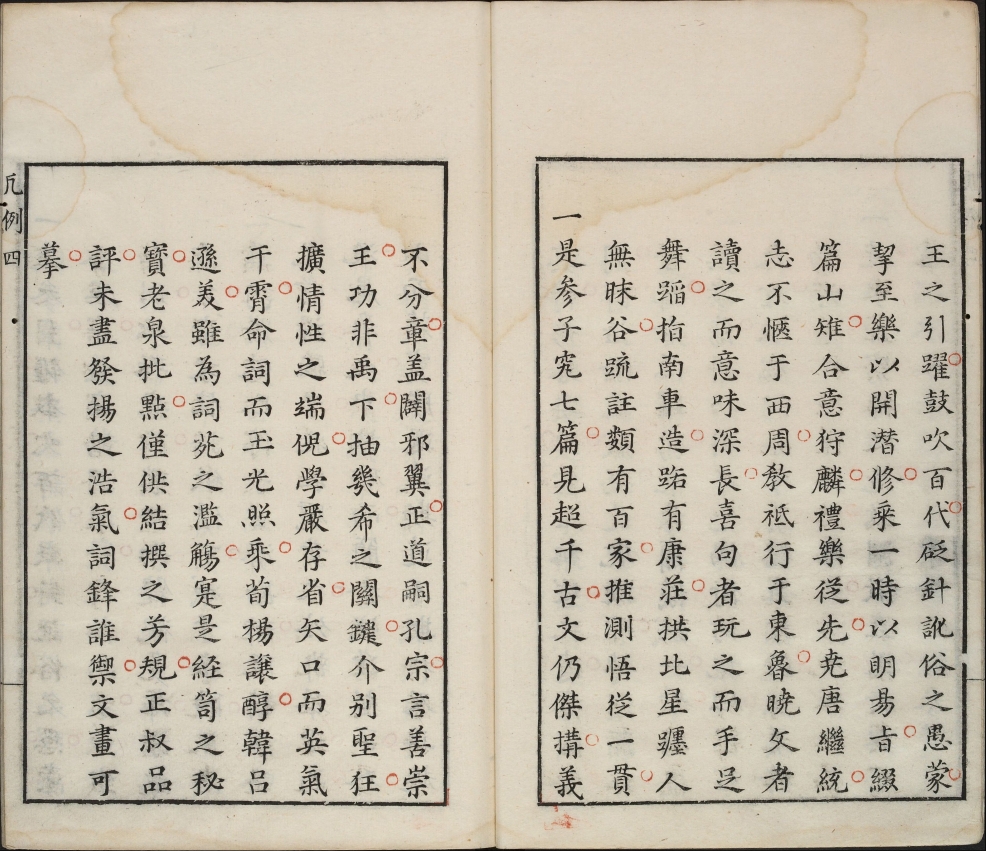 王之引躍鼓吹百代砭針訛俗之愚蒙
挈至樂以開潜修乘一時以明易旨綴
篇山雉合意狩麟禮樂從先堯唐繼統
志不愜于西周教祗行于東魯曉文者
讀之而意味深長喜句者玩之而手足
舞蹈指南車造跖有康莊拱北星躔人
無昧谷疏註類有百家推測悟從一貫
一是參子究七篇見超千古文仍傑搆義
不分章盖闢邪翼正道嗣孔宗言善崇
王功非禹下抽幾希之關鍵介别聖狂
擴情性之端倪學嚴存省矢口而英氣
干霄命詞而玉光照乘荀楊讓醇韓呂
遜美雖為詞苑之濫觴寔是経笥之秘
寶老泉批點僅供結撰之芳規正叔品
評未盡發揚之浩氣詞鋒誰禦文畫可
摹
凡例 四